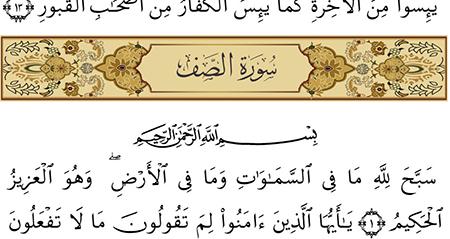 يَئِسُوا۟ مِنَ ٱلْءَاخِرَةِ كَمَا يَئِسَ ٱلْكُفَّارُ مِنْ أَصْحَٰبِ ٱلْقُبُورِ ﴿١٣﴾
سُورَةُ الصَّفِّ
بِسْمِ ٱللَّهِ ٱلرَّحْمَٰنِ ٱلرَّحِيمِ
سَبَّحَ لِلَّهِ مَا فِى ٱلسَّمَٰوَٰتِ وَمَا فِى ٱلْأَرْضِ ۖ وَهُوَ ٱلْعَزِيزُ
ٱلْحَكِيمُ ﴿١﴾ يَٰٓأَيُّهَا ٱلَّذِينَ ءَامَنُوا۟ لِمَ تَقُولُونَ مَا لَا تَفْعَلُونَ